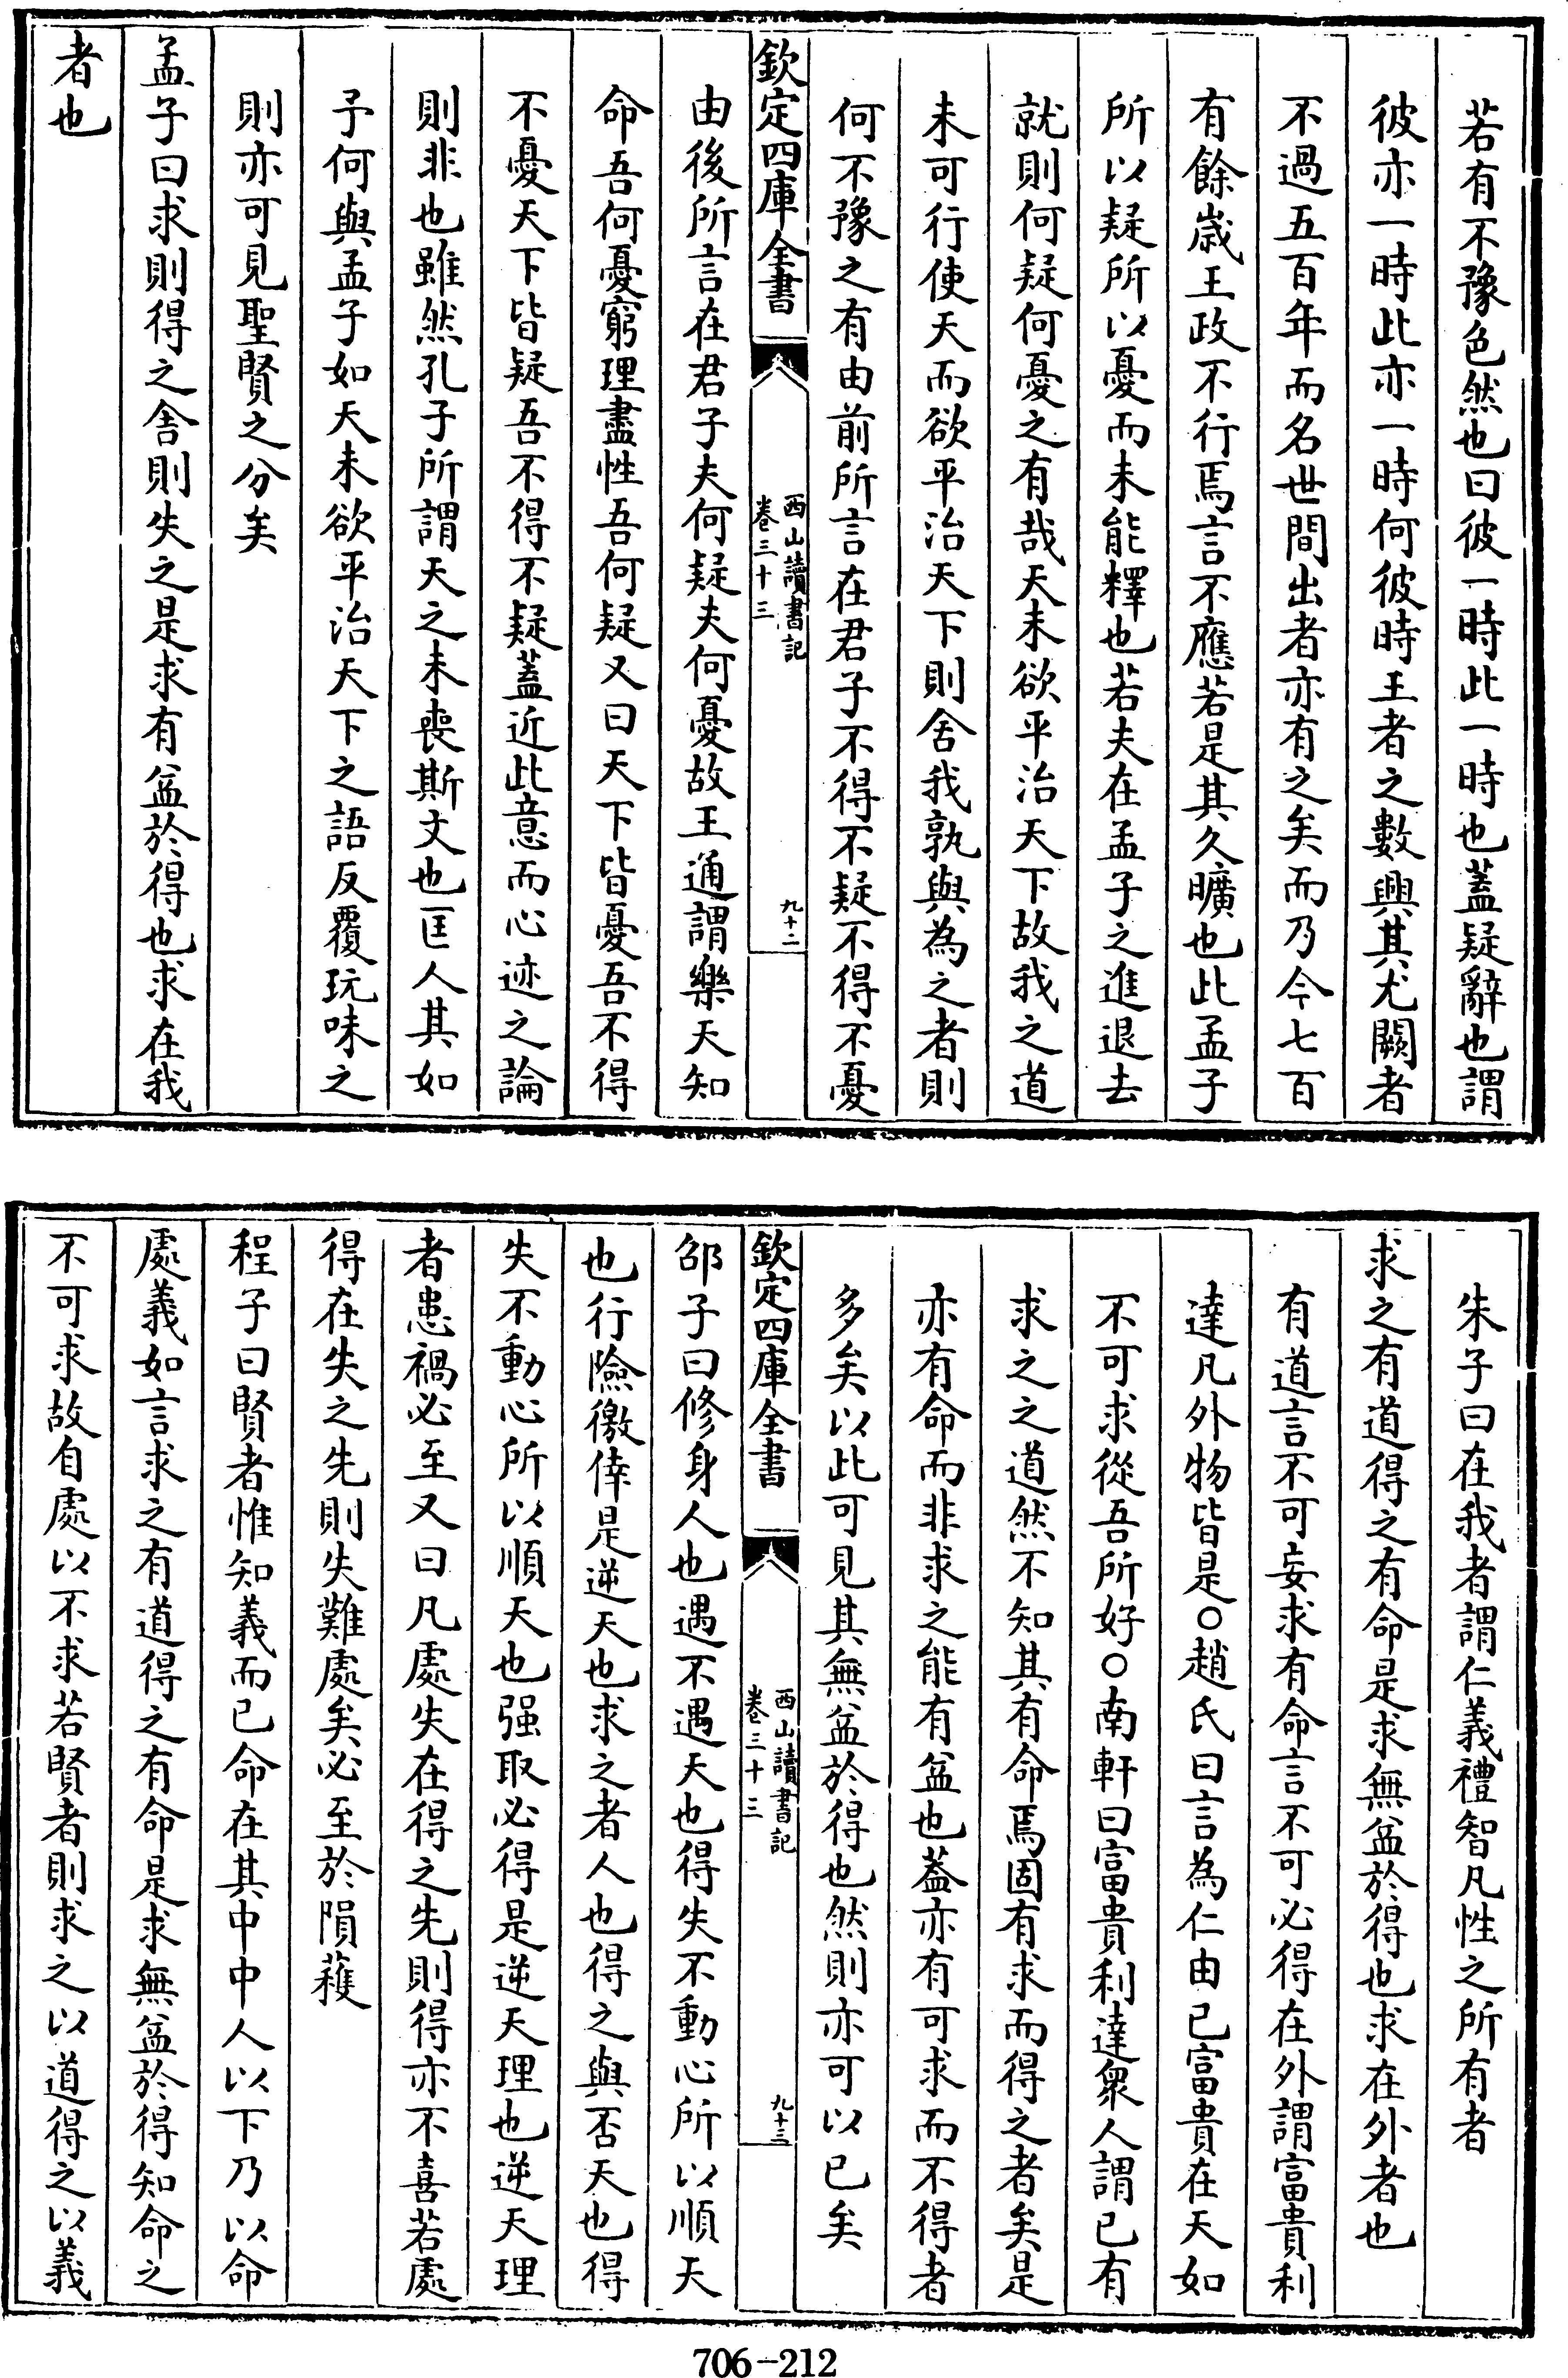 若有不豫色然也曰彼一時此一時也蓋疑辭也謂
彼亦一時此亦一時何彼時王者之數興其尤闕者
不過五百年而名世間出者亦有之矣而乃今七百
有餘歳王政不行焉言不應若是其久曠也此孟子
所以疑所以憂而未能釋也若夫在孟子之進退去
就則何疑何憂之有哉天未欲平治天下故我之道
未可行使天而欲平治天下則舍我孰與為之者則
何不豫之有由前所言在君子不得不疑不得不憂
欽定四庫全書
西山讀書記
卷三十三
九十二
由後所言在君子夫何疑夫何憂故王通謂樂天知
命吾何憂窮理盡性吾何疑又曰天下皆憂吾不得
不憂天下皆疑吾不得不疑蓋近此意而心迹之論
則非也雖然孔子所謂天之未喪斯文也匡人其如
予何與孟子如天未欲平治天下之語反覆玩味之
則亦可見聖賢之分矣
孟子曰求則得之舍則失之是求有益於得也求在我
者也
朱子曰在我者謂仁義禮智凡性之所有者
求之有道得之有命是求無益於得也求在外者也
有道言不可妄求有命言不可必得在外謂富貴利
達凡外物皆是○趙氏曰言為仁由已富貴在天如
不可求從吾所好○南軒曰富貴利達衆人謂已有
求之之道然不知其有命焉固有求而得之者矣是
亦有命而非求之能有益也蓋亦有可求而不得者
多矣以此可見其無益於得也然則亦可以已矣
欽定四庫全書
西山讀書記
卷三十三
九十三
邵子曰修身人也遇不遇天也得失不動心所以順天
也行險徼倖是逆天也求之者人也得之與否天也得
失不動心所以順天也强取必得是逆天理也逆天理
者患禍必至又曰凡處失在得之先則得亦不喜若處
得在失之先則失難處矣必至於隕穫
程子曰賢者惟知義而已命在其中中人以下乃以命
處義如言求之有道得之有命是求無益於得知命之
不可求故自處以不求若賢者則求之以道得之以義
706-212